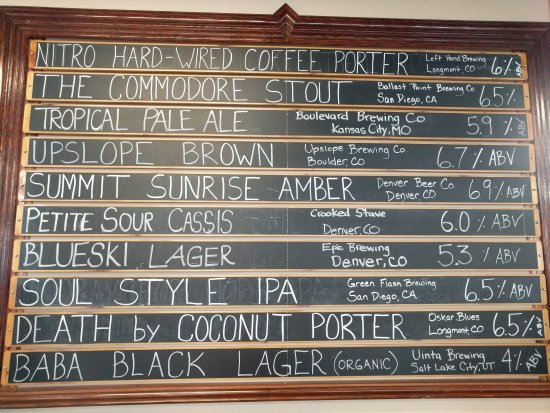 NITRO HARD-WIRED COFFEE PORTER Left Hand Brewing Longmont, CO 6% ABV
THE COMMODORE STOUT Ballast Point Brewing Co San Diego, CA 6.5%
TROPICAL PALE ALE Boulevard Brewing Co Kansas City, MO 5.9%
UPSLOPE BROWN Upslope Brewing Co Boulder, CO 6.7% ABV
SUMMIT SUNRISE AMBER Denver Beer Co Denver, CO 6.9% ABV
PETITE SOUR CASSIS Crooked Stave Denver, CO 6.0% ABV
BLUESKI LAGER Epic Brewing Denver, CO 5.3% ABV
SOUL STYLE IPA Green Flash Brewing San Diego, CA 6.5% ABV
DEATH by COCONUT PORTER Oskar Blues Longmont, CO 6.5% ABV
BABA BLACK LAGER (ORGANIC) Uinta Brewing Salt Lake City, UT 4% ABV